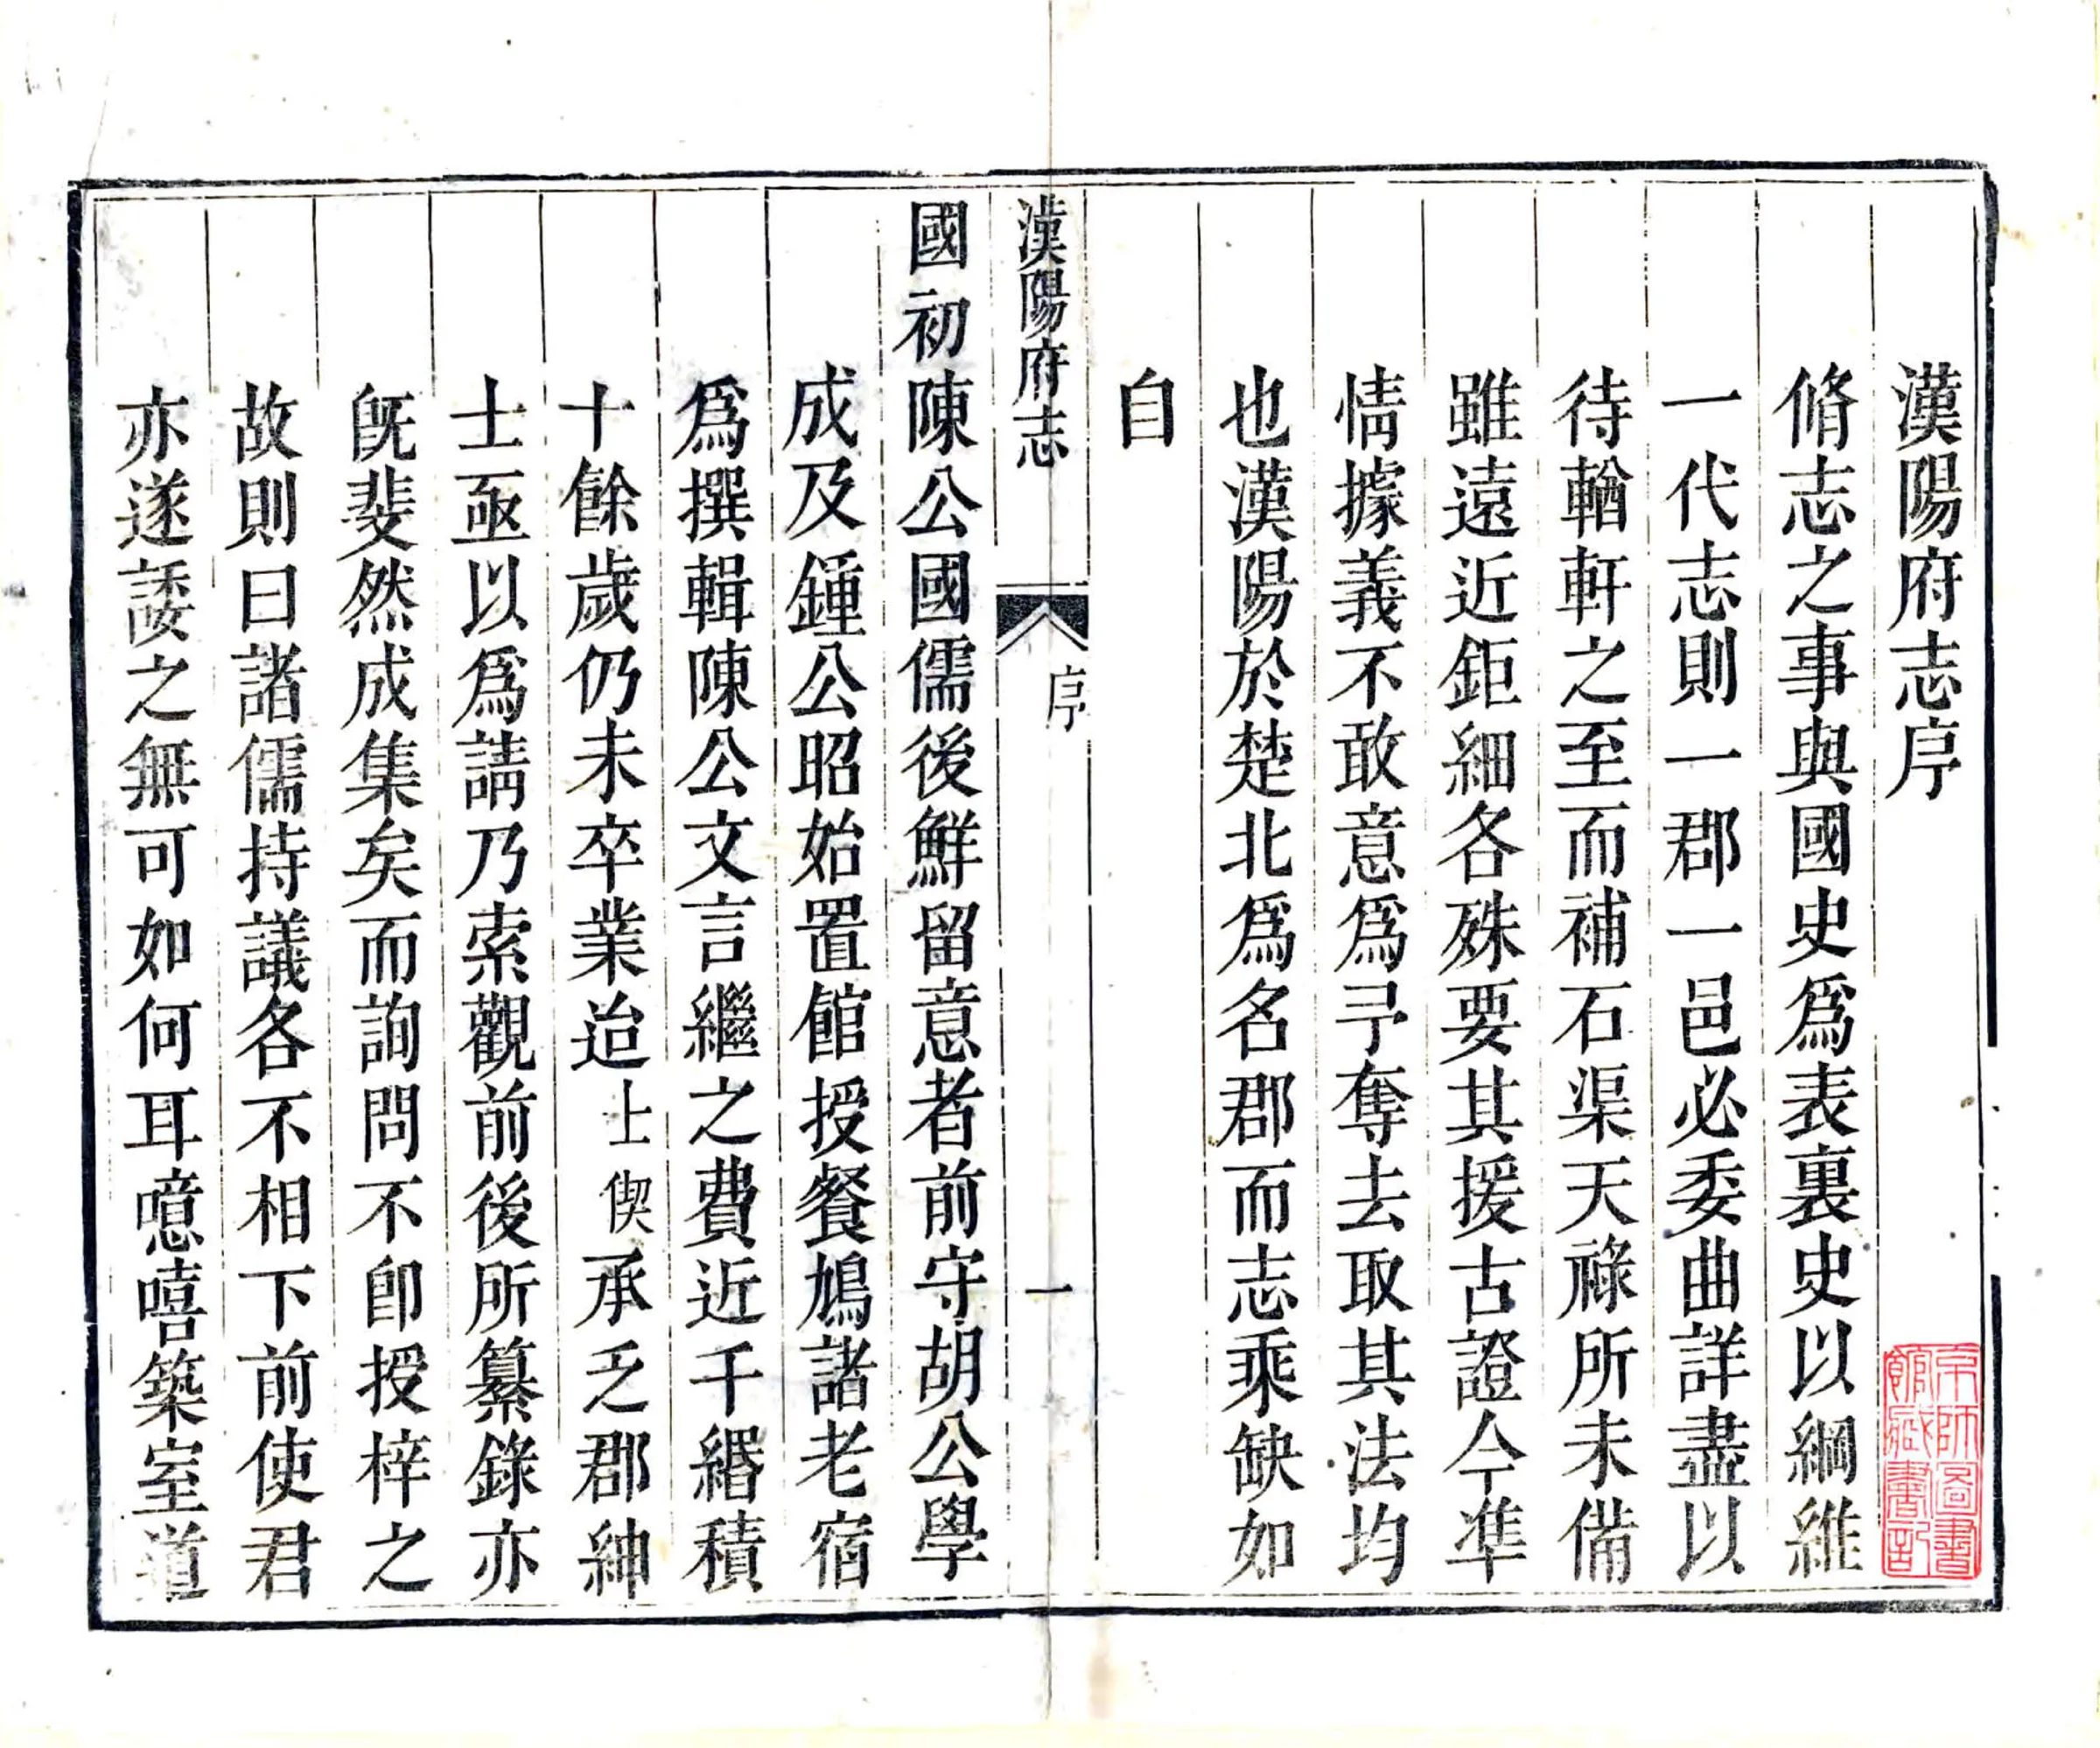 漢陽府志序
脩志之事與國史爲表裏史以綱維
一代志則一郡一邑必委曲詳盡以
待輶軒之至而補石渠天祿所未備
雖遠近鉅細各殊要其援古證今準
情據義不敢意爲予奪去取其法均
也漢陽於楚北爲名郡而志乘缺如
自
漢陽府志
序
一
國初陳公國儒後鮮留意者前守胡公學
成及鍾公昭始置館授餐鳩諸老宿
爲撰輯陳公文言繼之費近千緡積
十餘歲仍未卒業迨上偰承乏郡紳
士亟以爲請乃索觀前後所纂錄亦
既斐然成集矣而詢問不卽授梓之
故則曰諸儒持議各不相下前使君
亦遂諉之無可如何耳噫嘻築室道
京師圖書
館藏書記